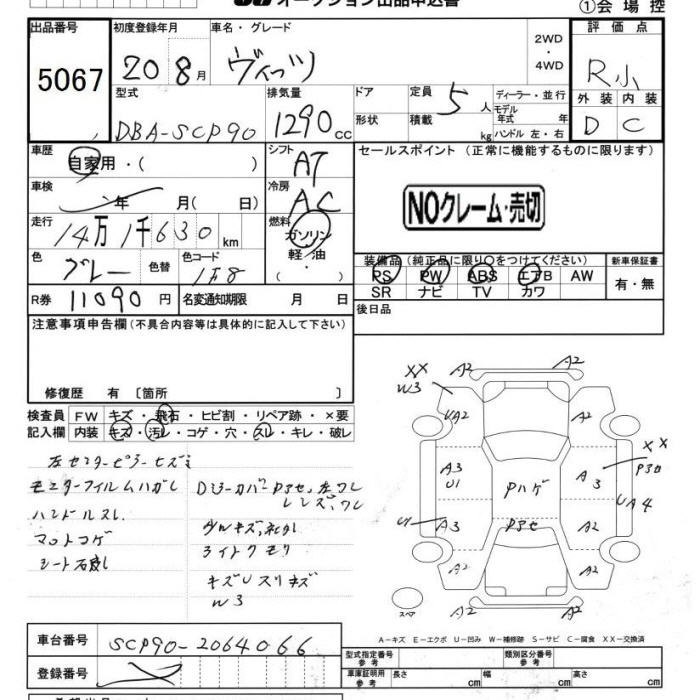 オークション出品申込書
①会場控
出品番号 初度登録年月 車名・グレード 2WD・4WD 評価点
5067 20 8月 ヴィッツ R小
型式 排気量 ドア 定員 5人 ディーラー・並行 外装 内装
DBA-SCP90 1290cc 形状 積載 kg モデル年式 年 ハンドル 左・右 D C
車歴 自家用・( ) シフト AT セールスポイント (正常に機能するものに限ります)
車検 年 月( 日) 冷房 AC
NOクレーム・売切
走行 14万1千630km 燃料 ガソリン 軽油・( )
色 グレー 色替 色コード 1F8
装備品(純正品に限り○をつけてください) 新車保証書
PS PW ABS エアB AW 有・無
SR ナビ TV カワ
R券 11090円 名変通知期限 月 日
後日品
注意事項申告欄(不具合内容等は具体的に記入して下さい)
修復歴 有 〔箇所 〕
検査員 FW キズ・飛石・ヒビ割・リペア跡・×要
記入欄 内装 キズ・汚レ・コゲ・穴・スレ・キレ・破レ
左センターピラーヒズミ
モニターフィルムハガレ
ハンドルスレ
マットコゲ
シート汚レ
ライトクモリ
W3
XX A2 A2
W3 UA2 A2
A3 U1 Pハゲ A3 XX
P3 UA4
U1 A3 Pアセ A2
A2 A2
A2 A2
スペア
A-キズ E-エクボ U-凹み W-補修跡 S-サビ C-腐食 XX-交換済
車台番号 SCP90-2064066
型式指定番号 参考 類別区分番号 参考
登録番号
車庫証明用 参考 長さ cm 幅 cm 高さ cm